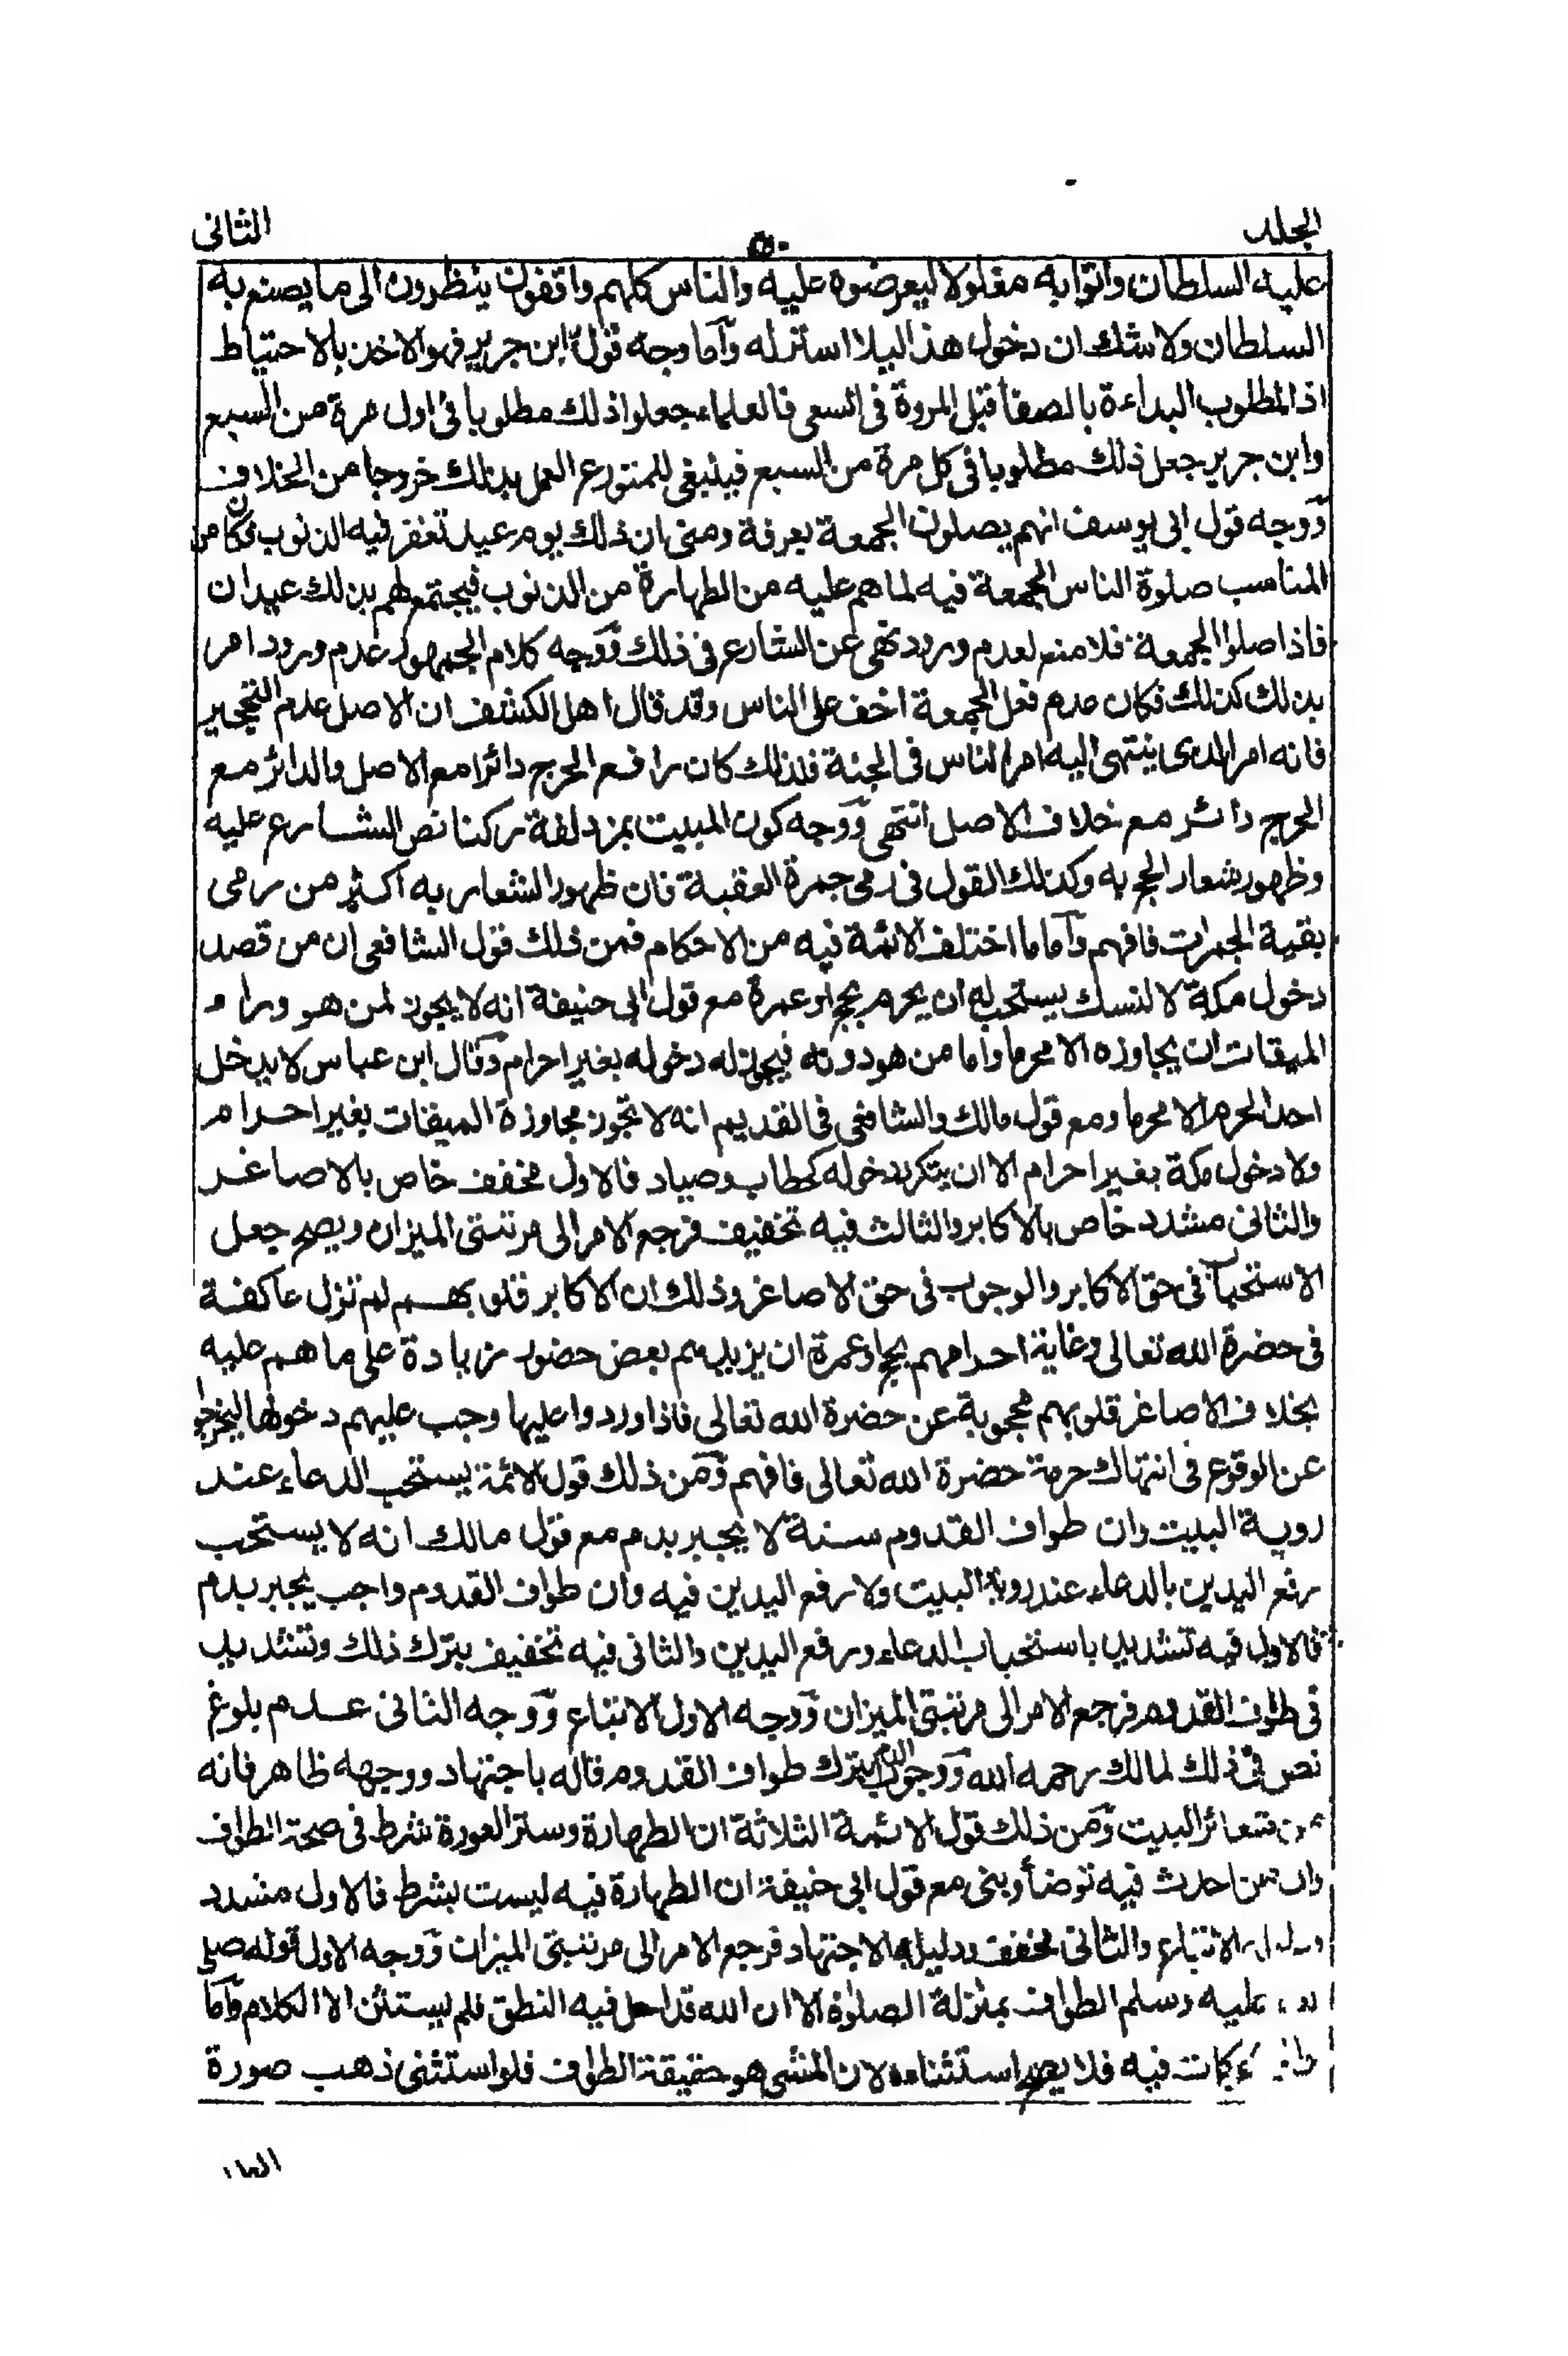 المجلد
٥٠
الثانى
عليه السلطان واتوا به مغلولا ليعرضوه عليه والناس كلهم واقفون ينظرون الى ما يصنع به
السلطان ولا شك ان دخول هذا ليلا استر له وآما وجه قول ابن جرير فهو الاخذ بالاحتياط
اذ المطلوب البداءة بالصفا قبل المروة فى السعى فالعلماء جعلوا ذلك مطلوبا فى اول مرة من السبع
وابن جرير جعل ذلك مطلوبا فى كل مرة من السبع فينبغى للمتورع العمل بذلك خروجا من الخلاف
ووجه قول ابى يوسف انهم يصلون الجمعة بعرفة ومنى ان ذلك يوم عيد تغفر فيه الذنوب فكان من
المناسب صلوة الناس الجمعة فيه لما هم عليه من الطهارة من الذنوب فيجتمع لهم بذلك عيدان
فاذا صلوا الجمعة فلا منع لعدم ورود نهى عن الشارع فى ذلك ووجه كلام الجمهور عدم ورود امر
بذلك كذلك فكان عدم فعل الجمعة اخف على الناس وقد قال اهل الكشف ان الاصل عدم التحجير
فانه امر الذى ينتهى اليه امر الناس فى الجنة فلذلك كان رافع الحرج دائرا مع الاصل والدائر مع
الحرج دائر مع خلاف الاصل انتهى ووجه كون المبيت بمزدلفة ركنا نص الشارع عليه
وظهور شعار الحج به وكذلك القول فى رمى جمرة العقبة فان ظهور الشعار به اكثر من رمى
بقية الجمرات فافهم وآما ما اختلف الائمة فيه من الاحكام فمن ذلك قول الشافعى ان من قصد
دخول مكة لا لنسك يستحب له ان يحرم بحج او عمرة مع قول ابى حنيفة انه لا يجوز لمن هو وراء
الميقات ان يجاوزه الا محرما واما من هو دونه فيجوز له دخوله بغير احرام وقال ابن عباس لا يدخل
احد الحرم الا محرما ومع قول مالك والشافعى فى القديم انه لا تجوز مجاوزة الميقات بغير احرام
ولا دخول مكة بغير احرام الا ان يتكرر دخوله كحطاب وصياد فالاول مخفف خاص بالاصاغر
والثانى مشدد خاص بالاكابر والثالث فيه تخفيف فرجع الامر الى مرتبتى الميزان ويصح جعل
الاستحباب فى حق الاكابر والوجوب فى حق الاصاغر وذلك ان الاكابر قلوبهم لم تزل عاكفة
فى حضرة الله تعالى وغاية احرامهم بحج او عمرة ان يزيدهم بعض حضور زيادة على ما هم عليه
بخلاف الاصاغر قلوبهم محجوبة عن حضرة الله تعالى فاذا وردوا عليها وجب عليهم دخولها ليخرجوا
عن الوقوع فى انتهاك حرمة حضرة الله تعالى فافهم ومن ذلك قول الائمة يستحب الدعاء عند
روية البيت وان طواف القدوم سنة لا يجبر بدم مع قول مالك انه لا يستحب
رفع اليدين بالدعاء عند روية البيت ولا رفع اليدين فيه وان طواف القدوم واجب يجبر بدم
فالاول فيه تشديد باستحباب الدعاء ورفع اليدين والثانى فيه تخفيف بترك ذلك وتشديد
فى طواف القدوم فرجع الامر الى مرتبتى الميزان ووجه الاول الاتباع ووجه الثانى عدم بلوغ
نص فى ذلك لمالك رحمه الله ووجوب الدم بترك طواف القدوم قاله باجتهاد ووجهه ظاهر فانه
من شعائر البيت ومن ذلك قول الائمة الثلاثة ان الطهارة وستر العورة شرط فى صحة الطواف
وان من احدث فيه توضأ وبنى مع قول ابى حنيفة ان الطهارة فيه ليست بشرط فالاول مشدد
الاتباع والثانى مخفف ودليله الاجتهاد فرجع الامر الى مرتبتى الميزان ووجه الاول قوله صلى
عليه وسلم الطواف بمنزلة الصلوة الا ان الله قد احل فيه النطق فلم يستثن الا الكلام وآما
فيه فلا يصح استثناءه لان المشى هو حقيقة الطواف فلو استثنى ذهب صورة